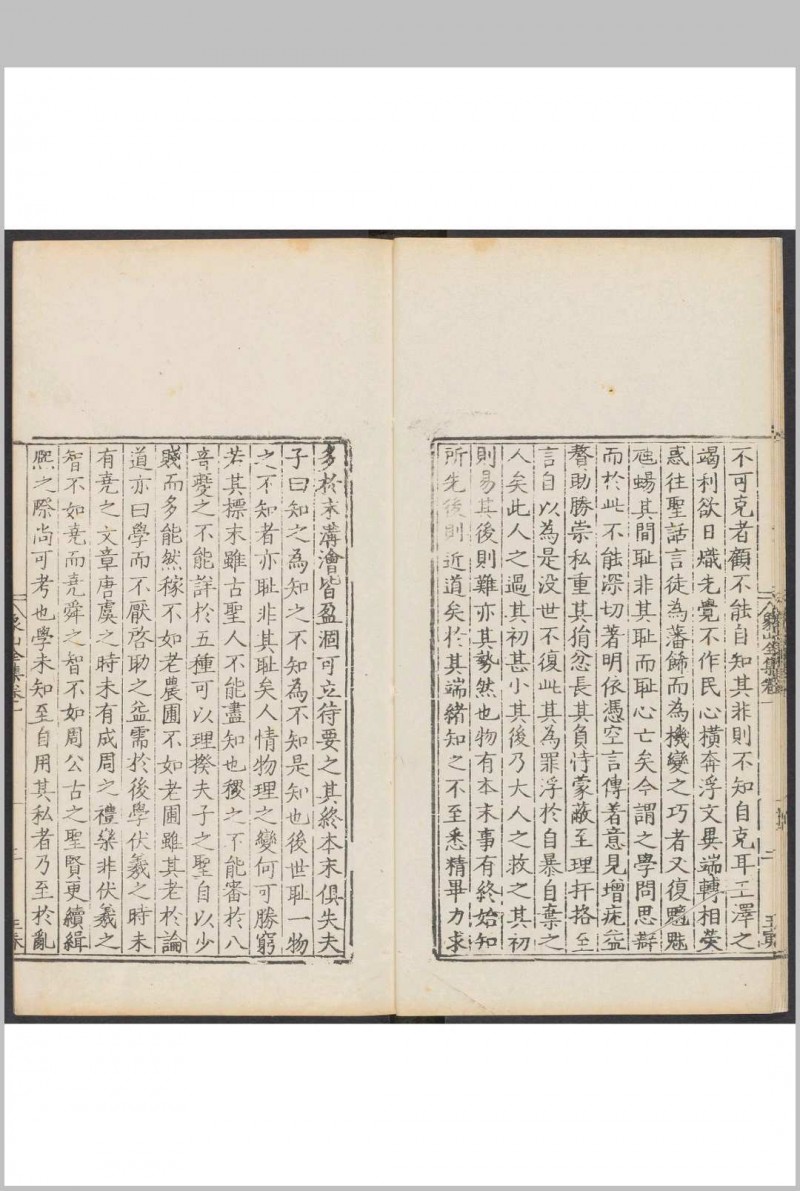 不可克者顧不能自知其非則不知自克耳王澤之
竭利欲日熾先覺不作民心橫奔浮文異端轉相熒
惑往聖話言徒為藩飾而為機變之巧者又復魑魅
虺蜴其間恥非其恥而恥心亡矣今謂之學問思辯
而於此不能深切著明依憑空言傅着意見增疣益
贅助勝崇私重其狷忿長其負恃蒙蔽至理扞格至
言自以為是没世不復此其為罪浮於自暴自棄之
人矣此人之過其初甚小其後乃大人之救之其初
則易其後則難亦其勢然也物有本末事有終始知
所先後則近道矣於其端緒知之不至悉精畢力求
多於末溝澮皆盈涸可立待要之其終本末俱失夫
子曰知之為知之不知為不知是知也後世恥一物
之不知者亦恥非其恥矣人情物理之變何可勝窮
若其標末雖古聖人不能盡知也稷之不能審於八
音夔之不能詳於五種可以理揆夫子之聖自以少
賤而多能然稼不如老農圃不如老圃雖其老於論
道亦曰學而不厭啓助之益需於後學伏羲之時未
有堯之文章唐虞之時未有成周之禮樂非伏羲之
智不如堯而堯舜之智不如周公古之聖賢更續緝
熙之際尚可考也學未知至自用其私者乃至於亂
象山全集卷一
二